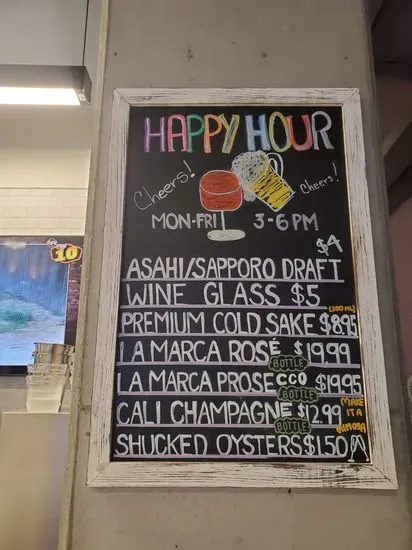 HAPPY HOUR
Cheers!
Cheers!
MON-FRI 3-6 PM
$4
ASAHI/SAPPORO DRAFT
WINE GLASS $5
(300 ML)
PREMIUM COLD SAKE $8.95
LA MARCA ROSÉ $19.99
BOTTLE
LA MARCA PROSECCO $19.95
BOTTLE
CALI CHAMPAGNE $12.99
BOTTLE
MAKE IT A MIMOSA
SHUCKED OYSTERS $1.50
10